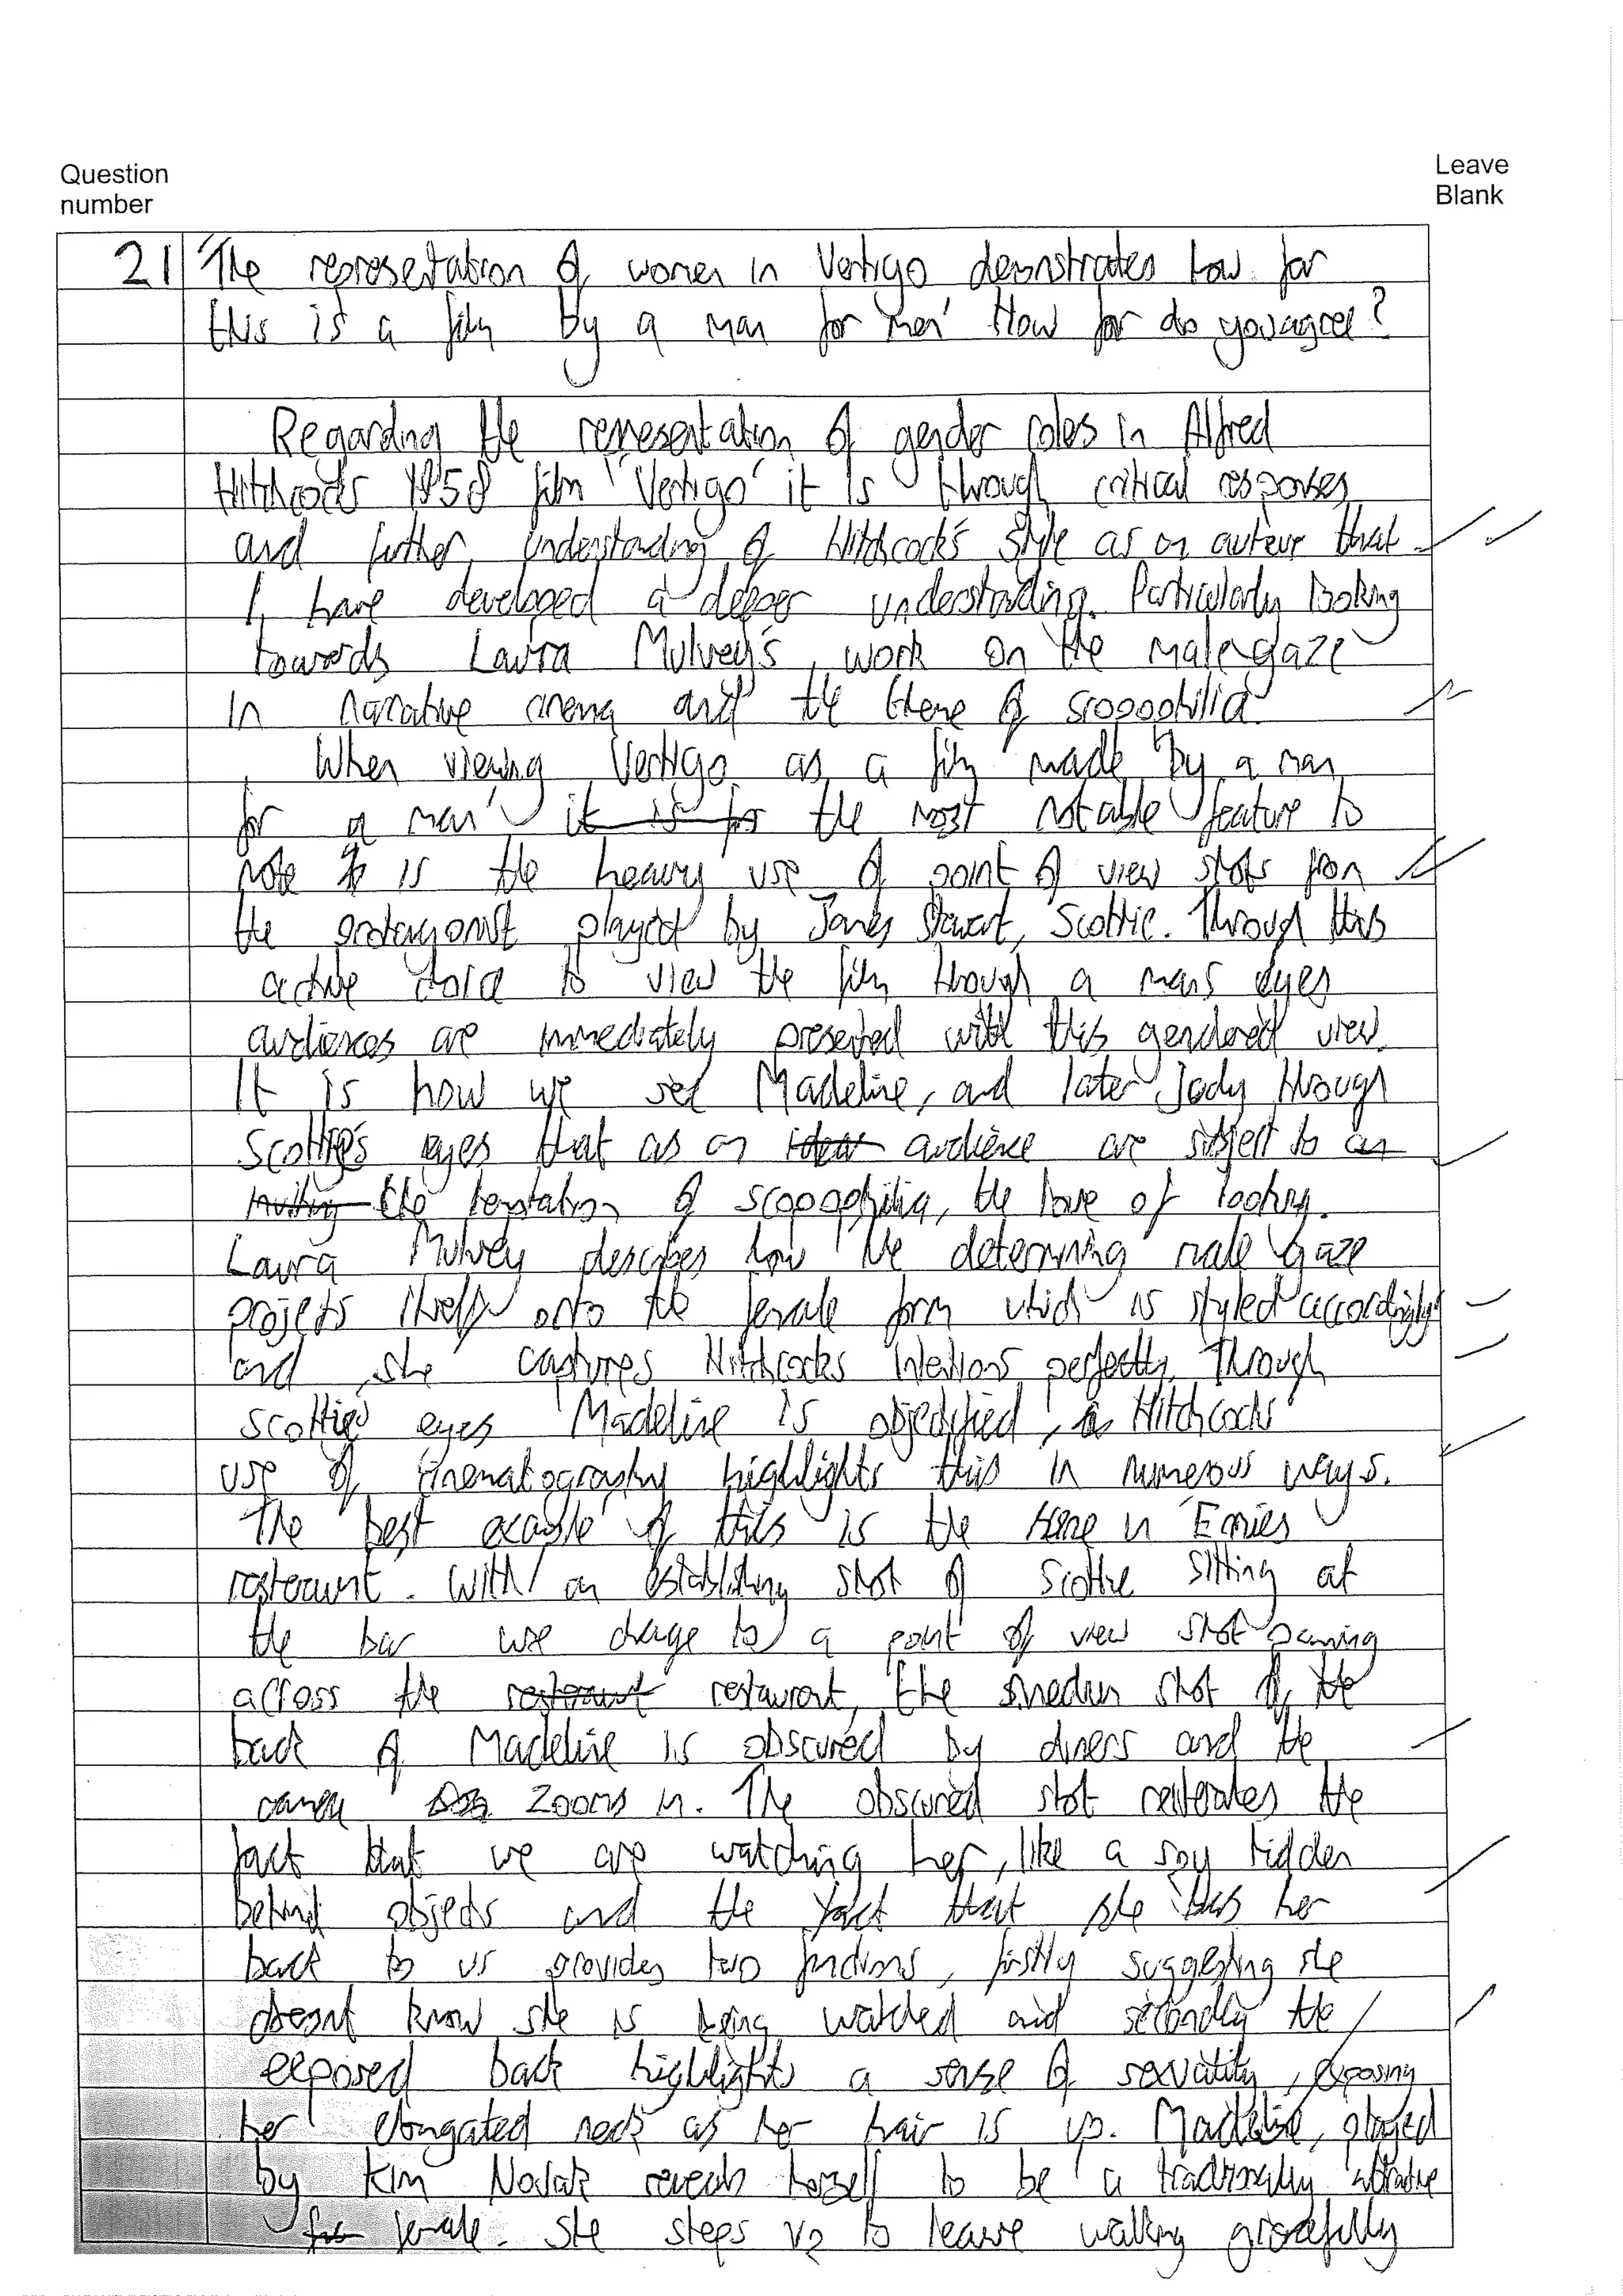 Question number
Leave Blank
21 'The representation of women in Vertigo demonstrates how far
this is a film by a man for men' How far do you agree?
Regarding the representation of gender roles in Alfred
Hitchcock's 1958 film 'Vertigo' it is through critical responses
and further understanding of Hitchcock's style as an auteur that
I have developed a deeper understanding. Particularly looking
towards Laura Mulvey's work on the male gaze
in narrative cinema and the theme of scopophilia.
When viewing Vertigo as a film 'made by a man
for a man' it is for the most notable feature to
note is the heavy use of point of view shots from
the protagonist played by James Stewart, Scottie. Through this
active to view the film through a mans eyes
audiences are immediately presented with this gendered view.
It is how we see Madeline, and later Judy through
Scottie's eyes that as an audience are subject to an
inviting the temptation of scopophilia, the love of looking.
Laura Mulvey describes how 'the determining male gaze
projects itself onto the female form which is styled accordingly'
and she captures Hitchcocks intentions perfectly. Through
Scotties eyes Madeline is objectified, Hitchcocks
use of cinematography highlights this in numerous ways.
The best example of this is the scene in Ernies
restaraunt. With an establishing shot of Scottie sitting at
the bar we change to a point of view shot panning
across the restaraunt restaurant, the medium shot of the
back of Madeline is obscured by diners and the
camera zooms in. The obscured shot reiterates the
fact that we are watching her, like a spy hidden
behind objects and the fact that she has her
back to us provides two functions, firstly suggesting she
doesnt know she is being watched and secondly the
exposed back highlights a sense of sexuality, exposing
her elongated neck as her hair is up. Madeline, played
by Kim Novak reveals herself to be a traditionally attractive
female. She steps up to leave walking gracefully